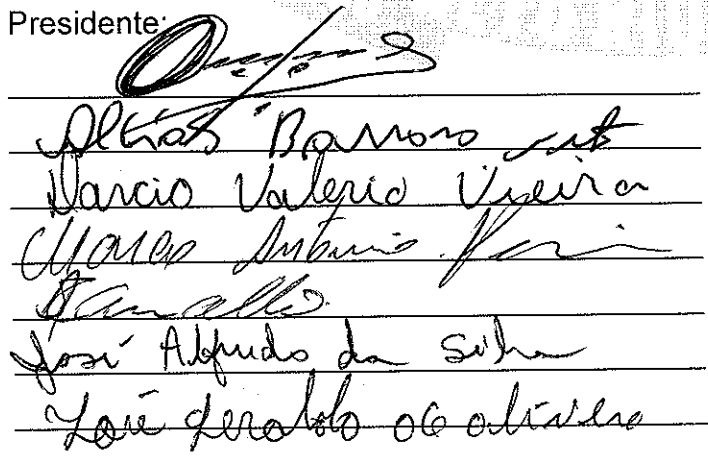 Presidente:
Barroso
Marcio Valerio Vieira
Marco Antonio
Carvalho
José Alfredo da Silva
José Geraldo de Oliveira